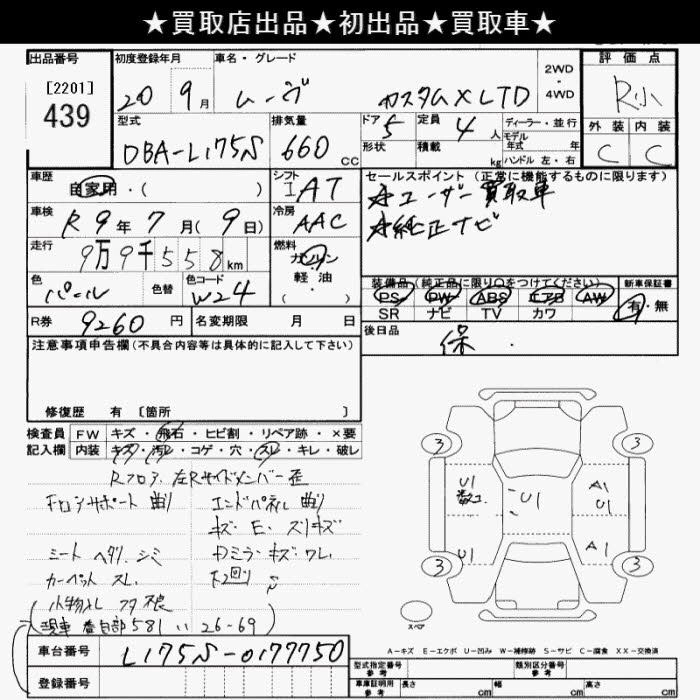 ★買取店出品★初出品★買取車★
出品番号 初度登録年月 車名・グレード 2WD・4WD 評価点
[2201]
439
20 9月 ムーヴ カスタムX LTD R小
型式 排気量 ドア 定員 ディーラー・並行 外装 内装
DBA-L175S 660cc 5 4人 モデル年式 年 C C
形状 積載 kg ハンドル 左・右
車歴 自家用・( ) シフト IAT セールスポイント(正常に機能するものに限ります)
☆ユーザー買取車
☆純正ナビ
車検 R9年7月(9日) 冷房 AAC
走行 9万9千558km 燃料 ガソリン 軽・油 ( )
色 パール 色替 色コード W24
装備品(純正品に限り○をつけてください) 新車保証書
PS PW ABS エアB AW 有・無
SR ナビ TV カワ
R券 9260円 名変期限 月 日 後日品 保.
注意事項申告欄(不具合内容等は具体的に記入して下さい)
修復歴 有 [箇所 ]
検査員 FW キズ・飛石・ヒビ割・リペア跡・×要
記入欄 内装 キズ・汚レ・コゲ・穴・スレ・キレ・破レ
Rフロア、左Rサイドメンバー歪
エンドパネル曲り
キズ E、スリキズ
シート ヘタリ、シミ ドミラーキズ ワレ
カーペット スレ 下2回リ
小物入レ フタ不良
(現車 番目部581 い 26-69)
車台番号 L175S-0177750
登録番号
3 3
U1 A1
数コ U1 U1
U1 A1
3 3
スペア
A-キズ E-エクボ U-凹み W-補修跡 S-サビ C-腐食 XX-交換済
型式指定番号 参考 類別区分番号 参考
車庫証明用 参考 長さ cm 幅 cm 高さ cm